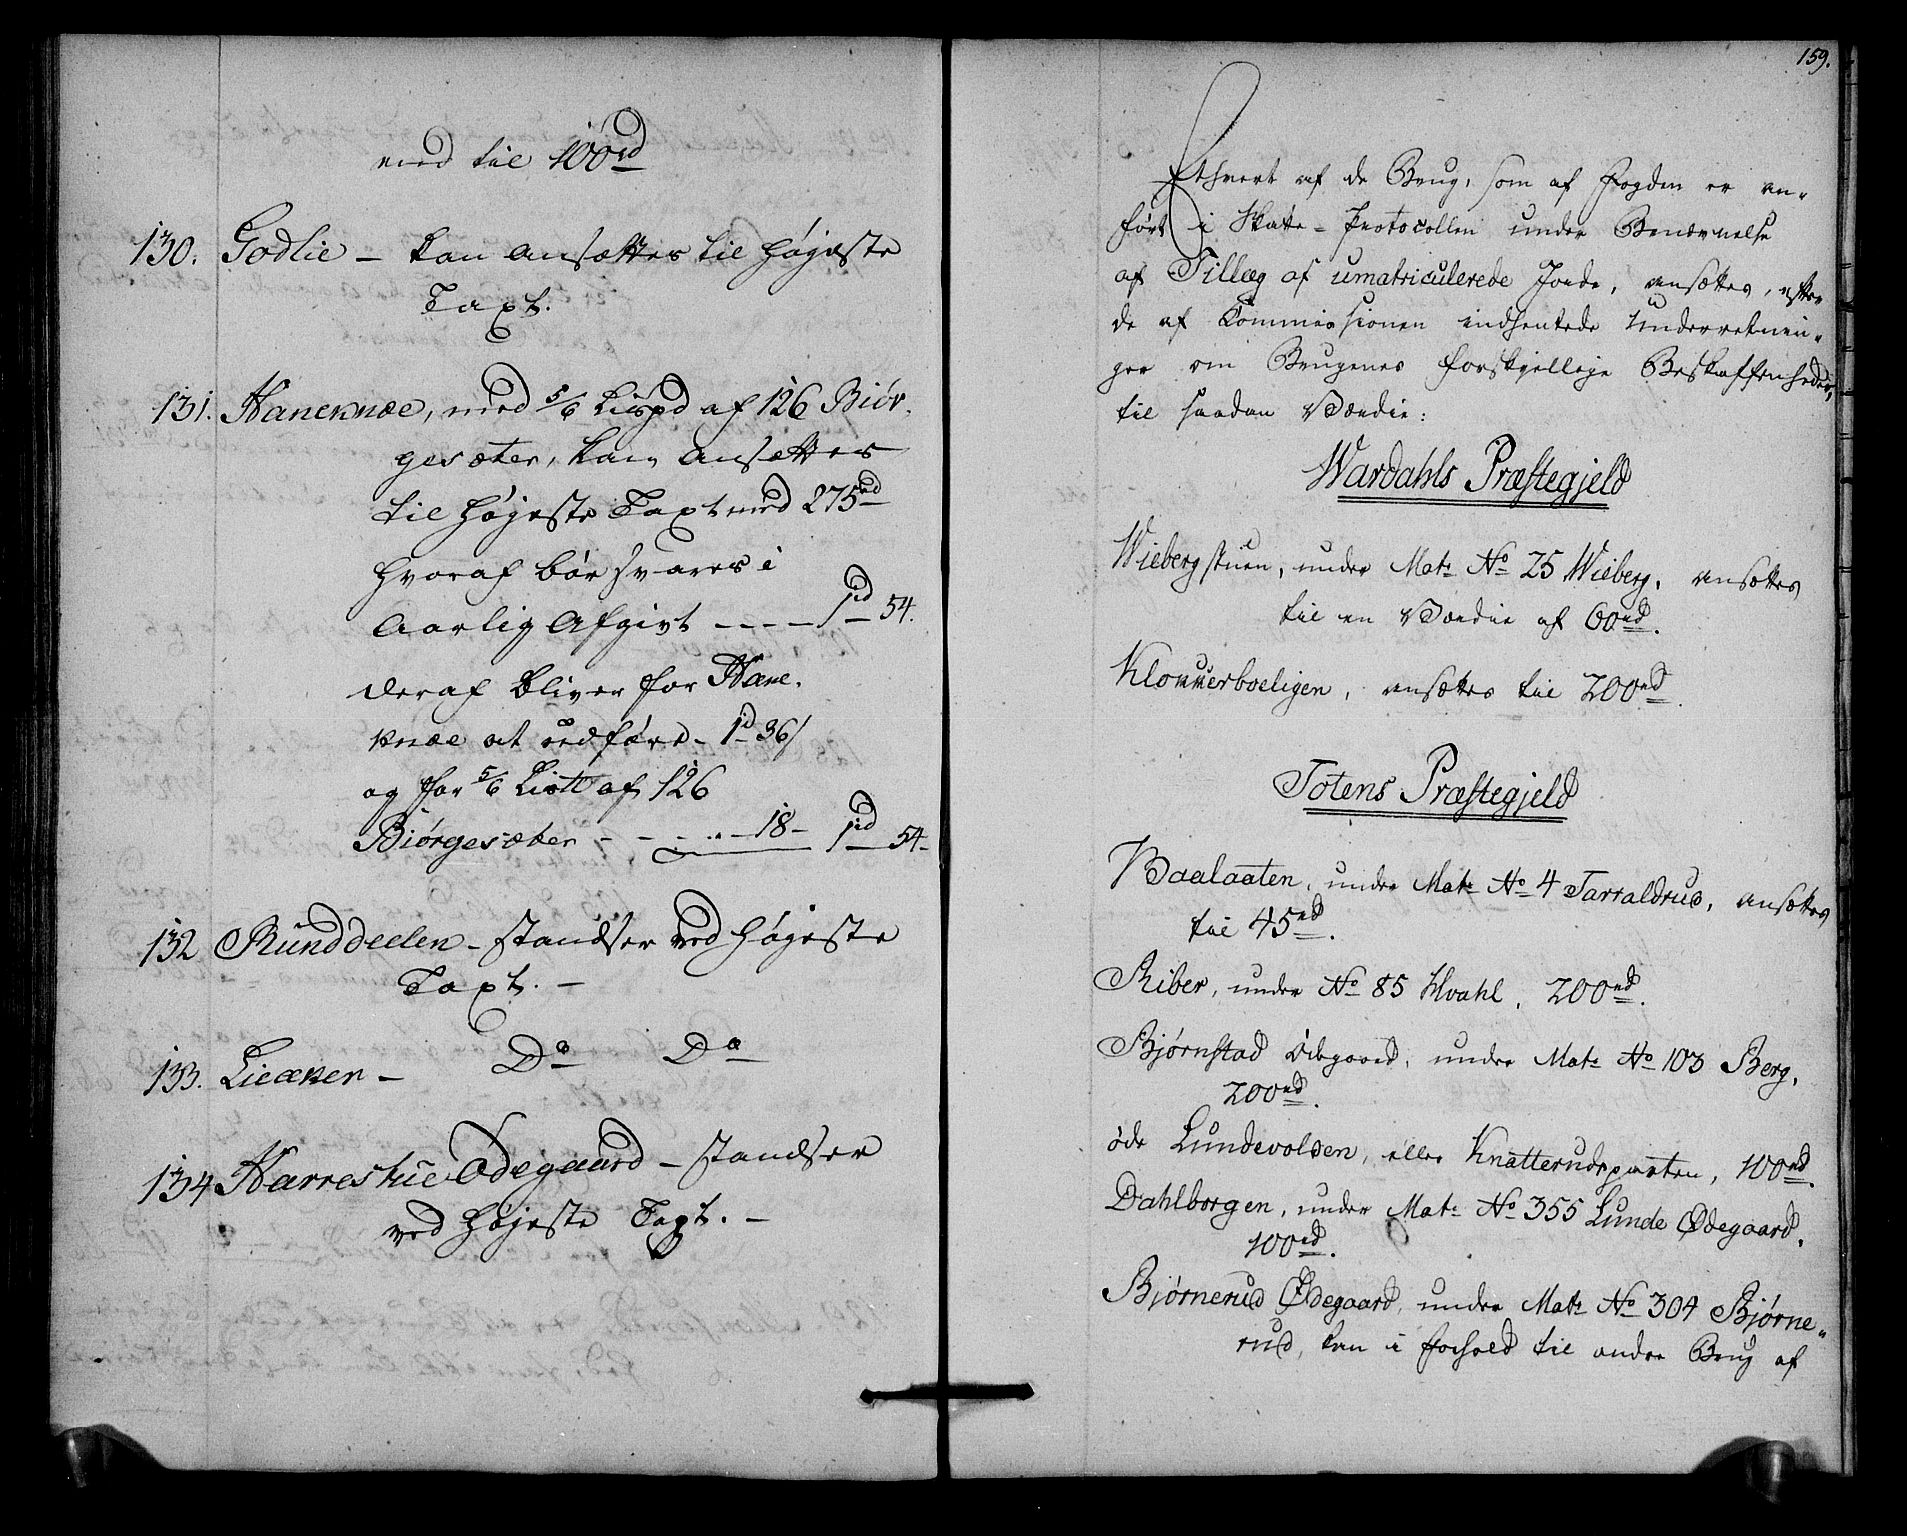 med til 100rd
130. Godlie – kan ansættes til høgeste
Taxt.
131. Haneknæe, med 5/6 Lispd af 126 Biør-
gesæter, kan ansættes
til høgeste Taxt med 275rd
hvoraf bør svares i
Aarlig Afgivt - - - - 1rd 54.
deraf bliver for Hane-
knæe at udføre - 1rd 36/
og for 5/6 List af 126
Biørgesæter - - - - 18 - 1rd 54 -
132 Runddeelen - standser ved høgeste
Taxt. -
133. Lieæker - Do Do
134 Harrestue Ødegaard - standser
ved høgeste Taxt. -
159.
Ethvert af de Brug, som af Fogden er an-
ført i Skatte-Protocollen under Benævnelse
af Tillæg af umatriculerede Jorde, ansættes, efter
de af Commissionen indhentede Underretnin-
ger om Brugenes forskjellige Beskaffenheder,
til saadan Værdie:
Wardahls Præstegjeld
Wiebergstuen, under Mat: No 25 Wieberg, ansættes
til en Værdie af 60rd.
Klouuerboeligen, ansættes til 200rd.
Totens Præstegjeld
Baalaaten, under Mat: No 4 Tarraldrud, ansættes
til 45rd.
Riber, under No 85 Hvahl, 200rd.
Bjørnstad Ødegaard, under Mat: No 103 Berg,
200rd.
øde Lundevolden, eller Knatterudsparten, 100rd.
Dahlborgen, under Mat: No 355 Lunde Ødegaard,
100rd.
Bjørnerud Ødegaard, under Mat: No 304 Bjørne-
rud, kan i Forhold til andre Brug af